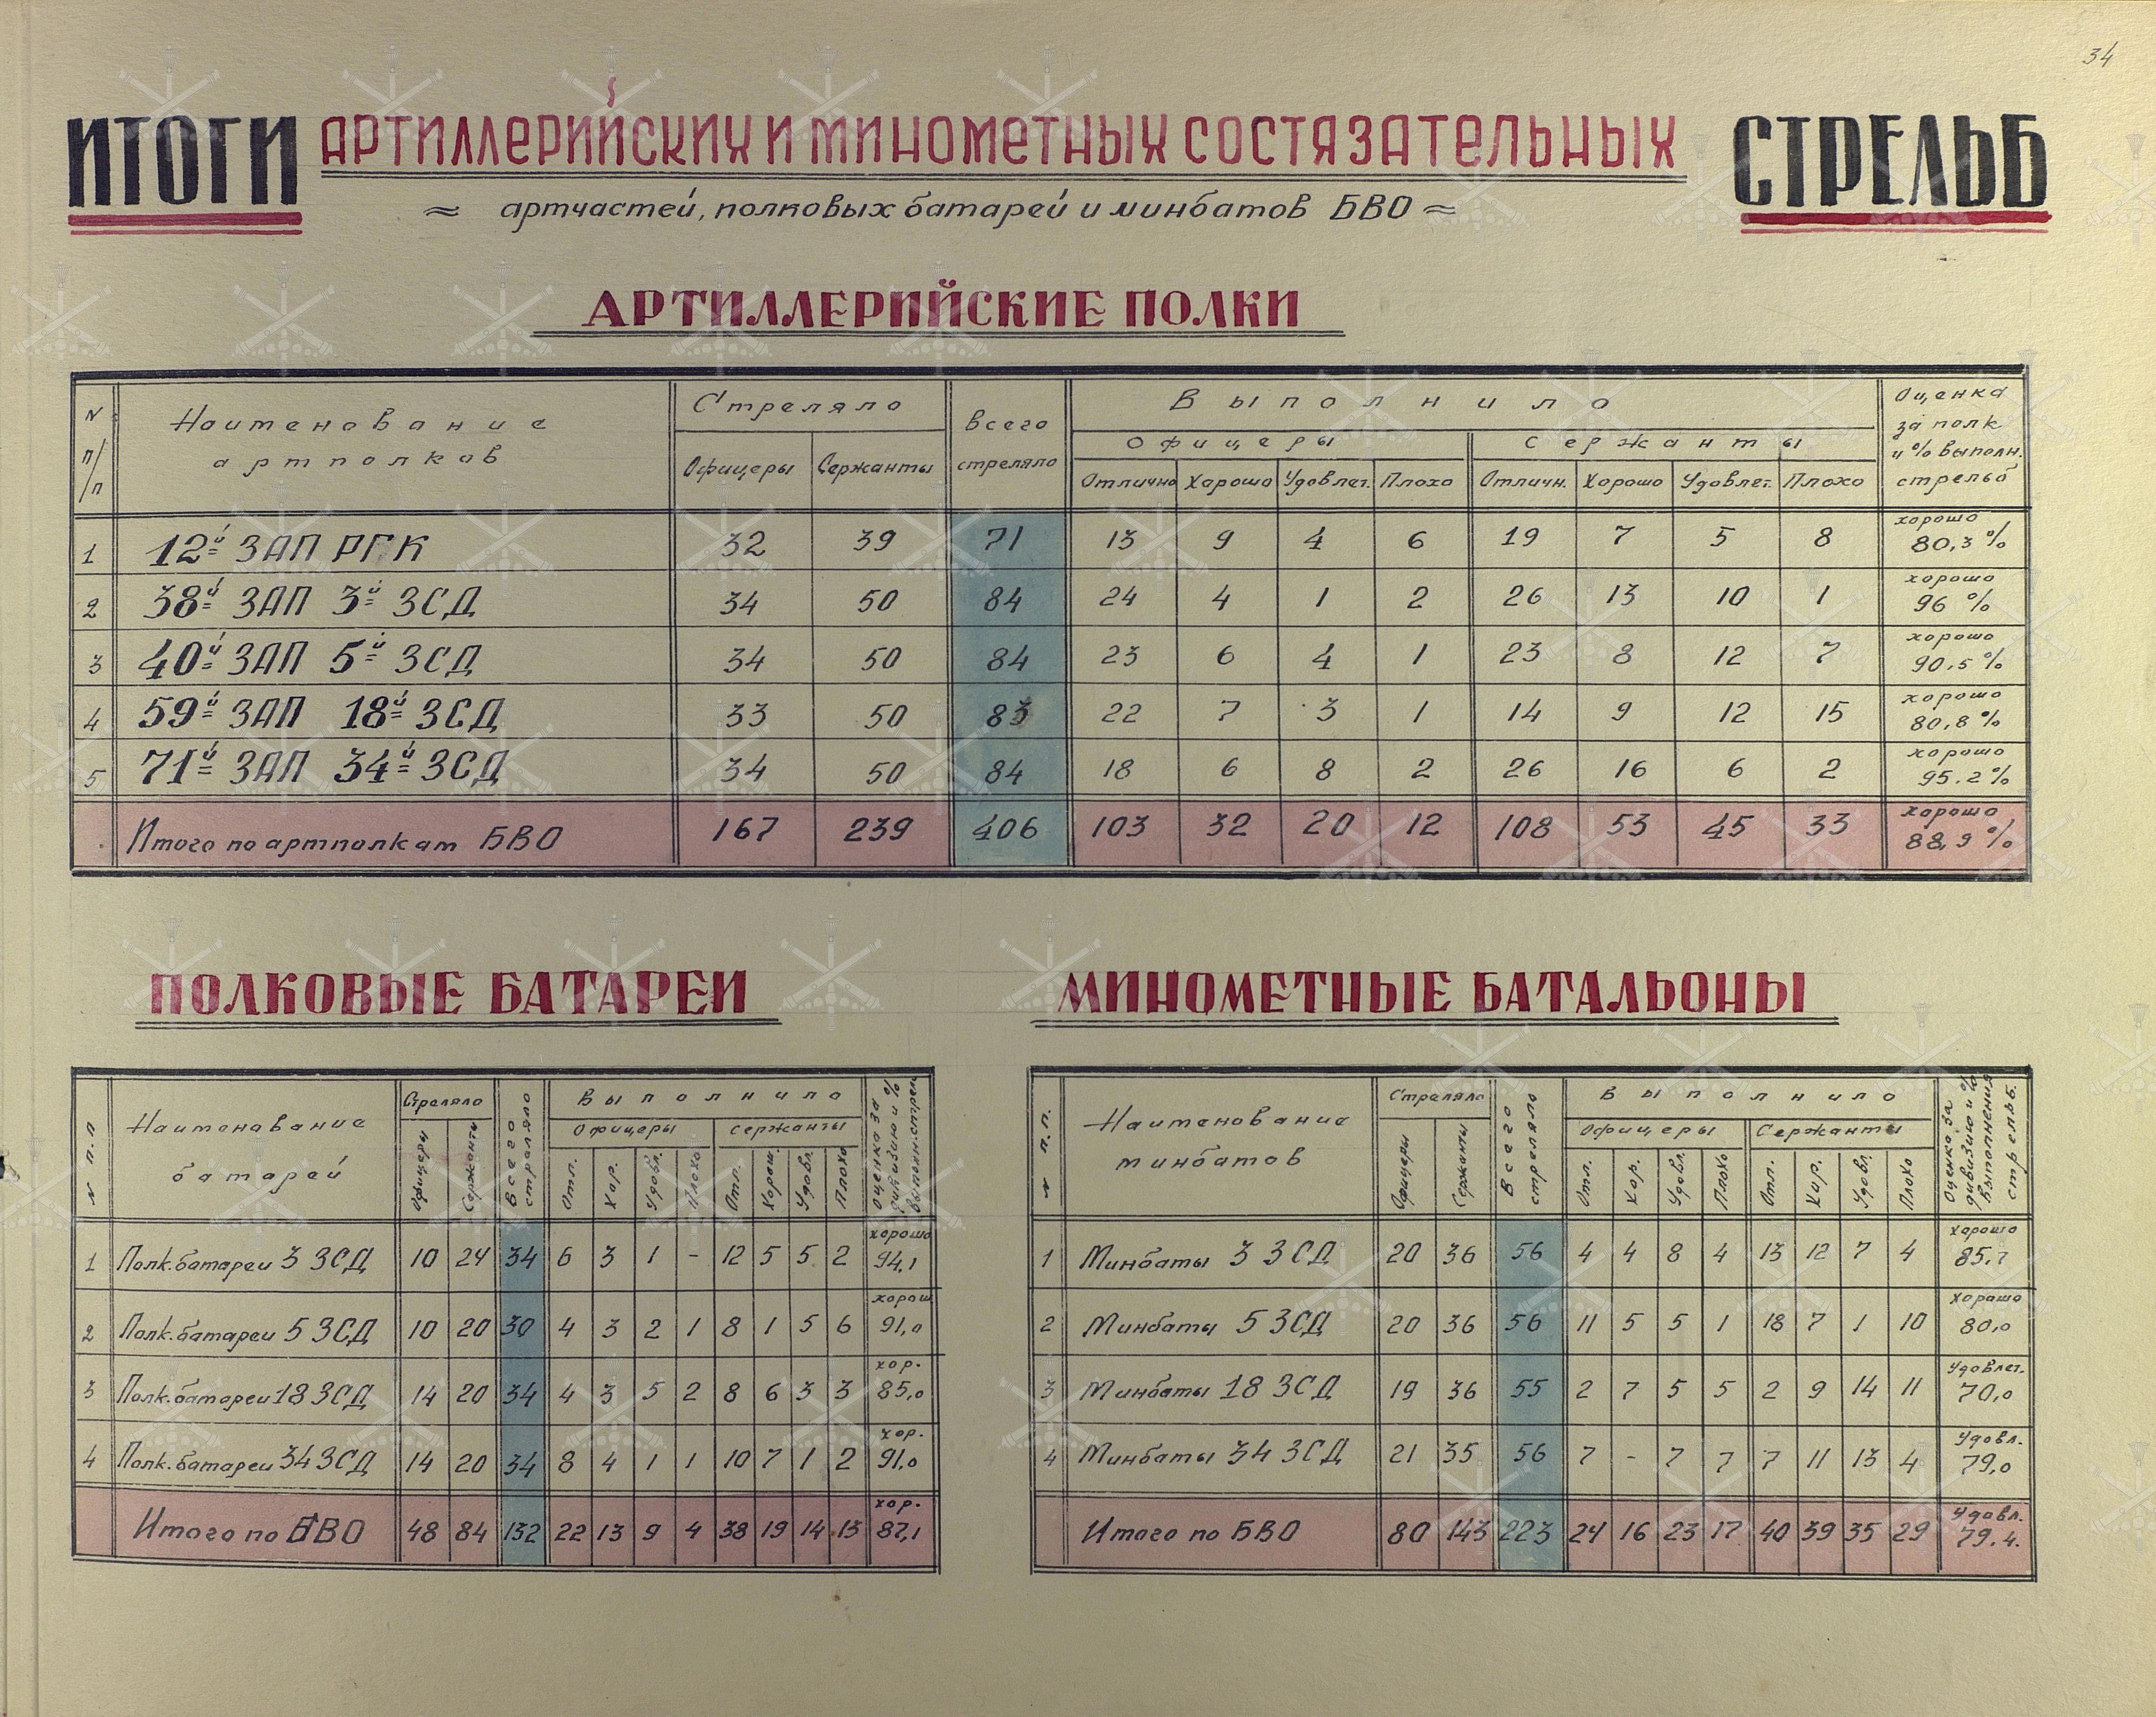 34
ИТОГИ АРТИЛЛЕРИЙСКИХ И МИНОМЕТНЫХ СОСТЯЗАТЕЛЬНЫХ СТРЕЛЬБ
≈ артчастей, полковых батарей и минбатов БВО ≈
АРТИЛЛЕРИЙСКИЕ ПОЛКИ
N п/п Наименование артполков Стреляло Всего стреляло Выполнило Оценка за полк и % выполн. стрельб
Офицеры Сержанты
Офицеры Сержанты Отлично Хорошо Удовлет. Плохо Отличн. Хорошо Удовлет. Плохо
1 12й ЗАП РГК 32 39 71 13 9 4 6 19 7 5 8 хорошо 80,3 %
2 38й ЗАП 3й ЗСД 34 50 84 24 4 1 2 26 13 10 1 хорошо 96 %
3 40й ЗАП 5й ЗСД 34 50 84 23 6 4 1 23 8 12 7 хорошо 90,5 %
4 59й ЗАП 18й ЗСД 33 50 83 22 7 3 1 14 9 12 15 хорошо 80,8 %
5 71й ЗАП 34й ЗСД 34 50 84 18 6 8 2 26 16 6 2 хорошо 95.2 %
Итого по артполкам БВО 167 239 406 103 32 20 12 108 53 45 33 хорошо 88,9 %
ПОЛКОВЫЕ БАТАРЕИ
N п.п Наименование батарей Стреляло Всего стреляло Выполнило Оценка за дивизию и % выполн. стрел.
Офицеры Сержанты
Офицеры Сержанты Отл. Хор. Удовл. Плохо Отл. Хорош. Удовл. Плохо
1 Полк.батареи 3 ЗСД 10 24 34 6 3 1 - 12 5 5 2 хорошо 94,1
2 Полк.батареи 5 ЗСД 10 20 30 4 3 2 1 8 1 5 6 хорош 91,0
3 Полк.батареи 18 ЗСД 14 20 34 4 3 5 2 8 6 3 3 хор. 85,0
4 Полк.батареи 34 ЗСД 14 20 34 8 4 1 1 10 7 1 2 хор. 91,0
Итого по БВО 48 84 132 22 13 9 4 38 19 14 13 хор. 87,1
МИНОМЕТНЫЕ БАТАЛЬОНЫ
N п.п. Наименование минбатов Стреляло Всего стреляло Выполнило Оценка за дивизию и % выполнения стрельб.
Офицеры Сержанты
Офицеры Сержанты Отл. Хор. Удовл. Плохо Отл. Хор. Удовл. Плохо
1 Минбаты 3 ЗСД 20 36 56 4 4 8 4 13 12 7 4 хорошо 85,7
2 Минбаты 5 ЗСД 20 36 56 11 5 5 1 18 7 1 10 хорошо 80,0
3 Минбаты 18 ЗСД 19 36 55 2 7 5 5 2 9 14 11 Удовлет. 70,0
4 Минбаты 34 ЗСД 21 35 56 7 - 7 7 7 11 13 4 Удовл. 79,0
Итого по БВО 80 143 223 24 16 23 17 40 39 35 29 Удовл. 79.4.